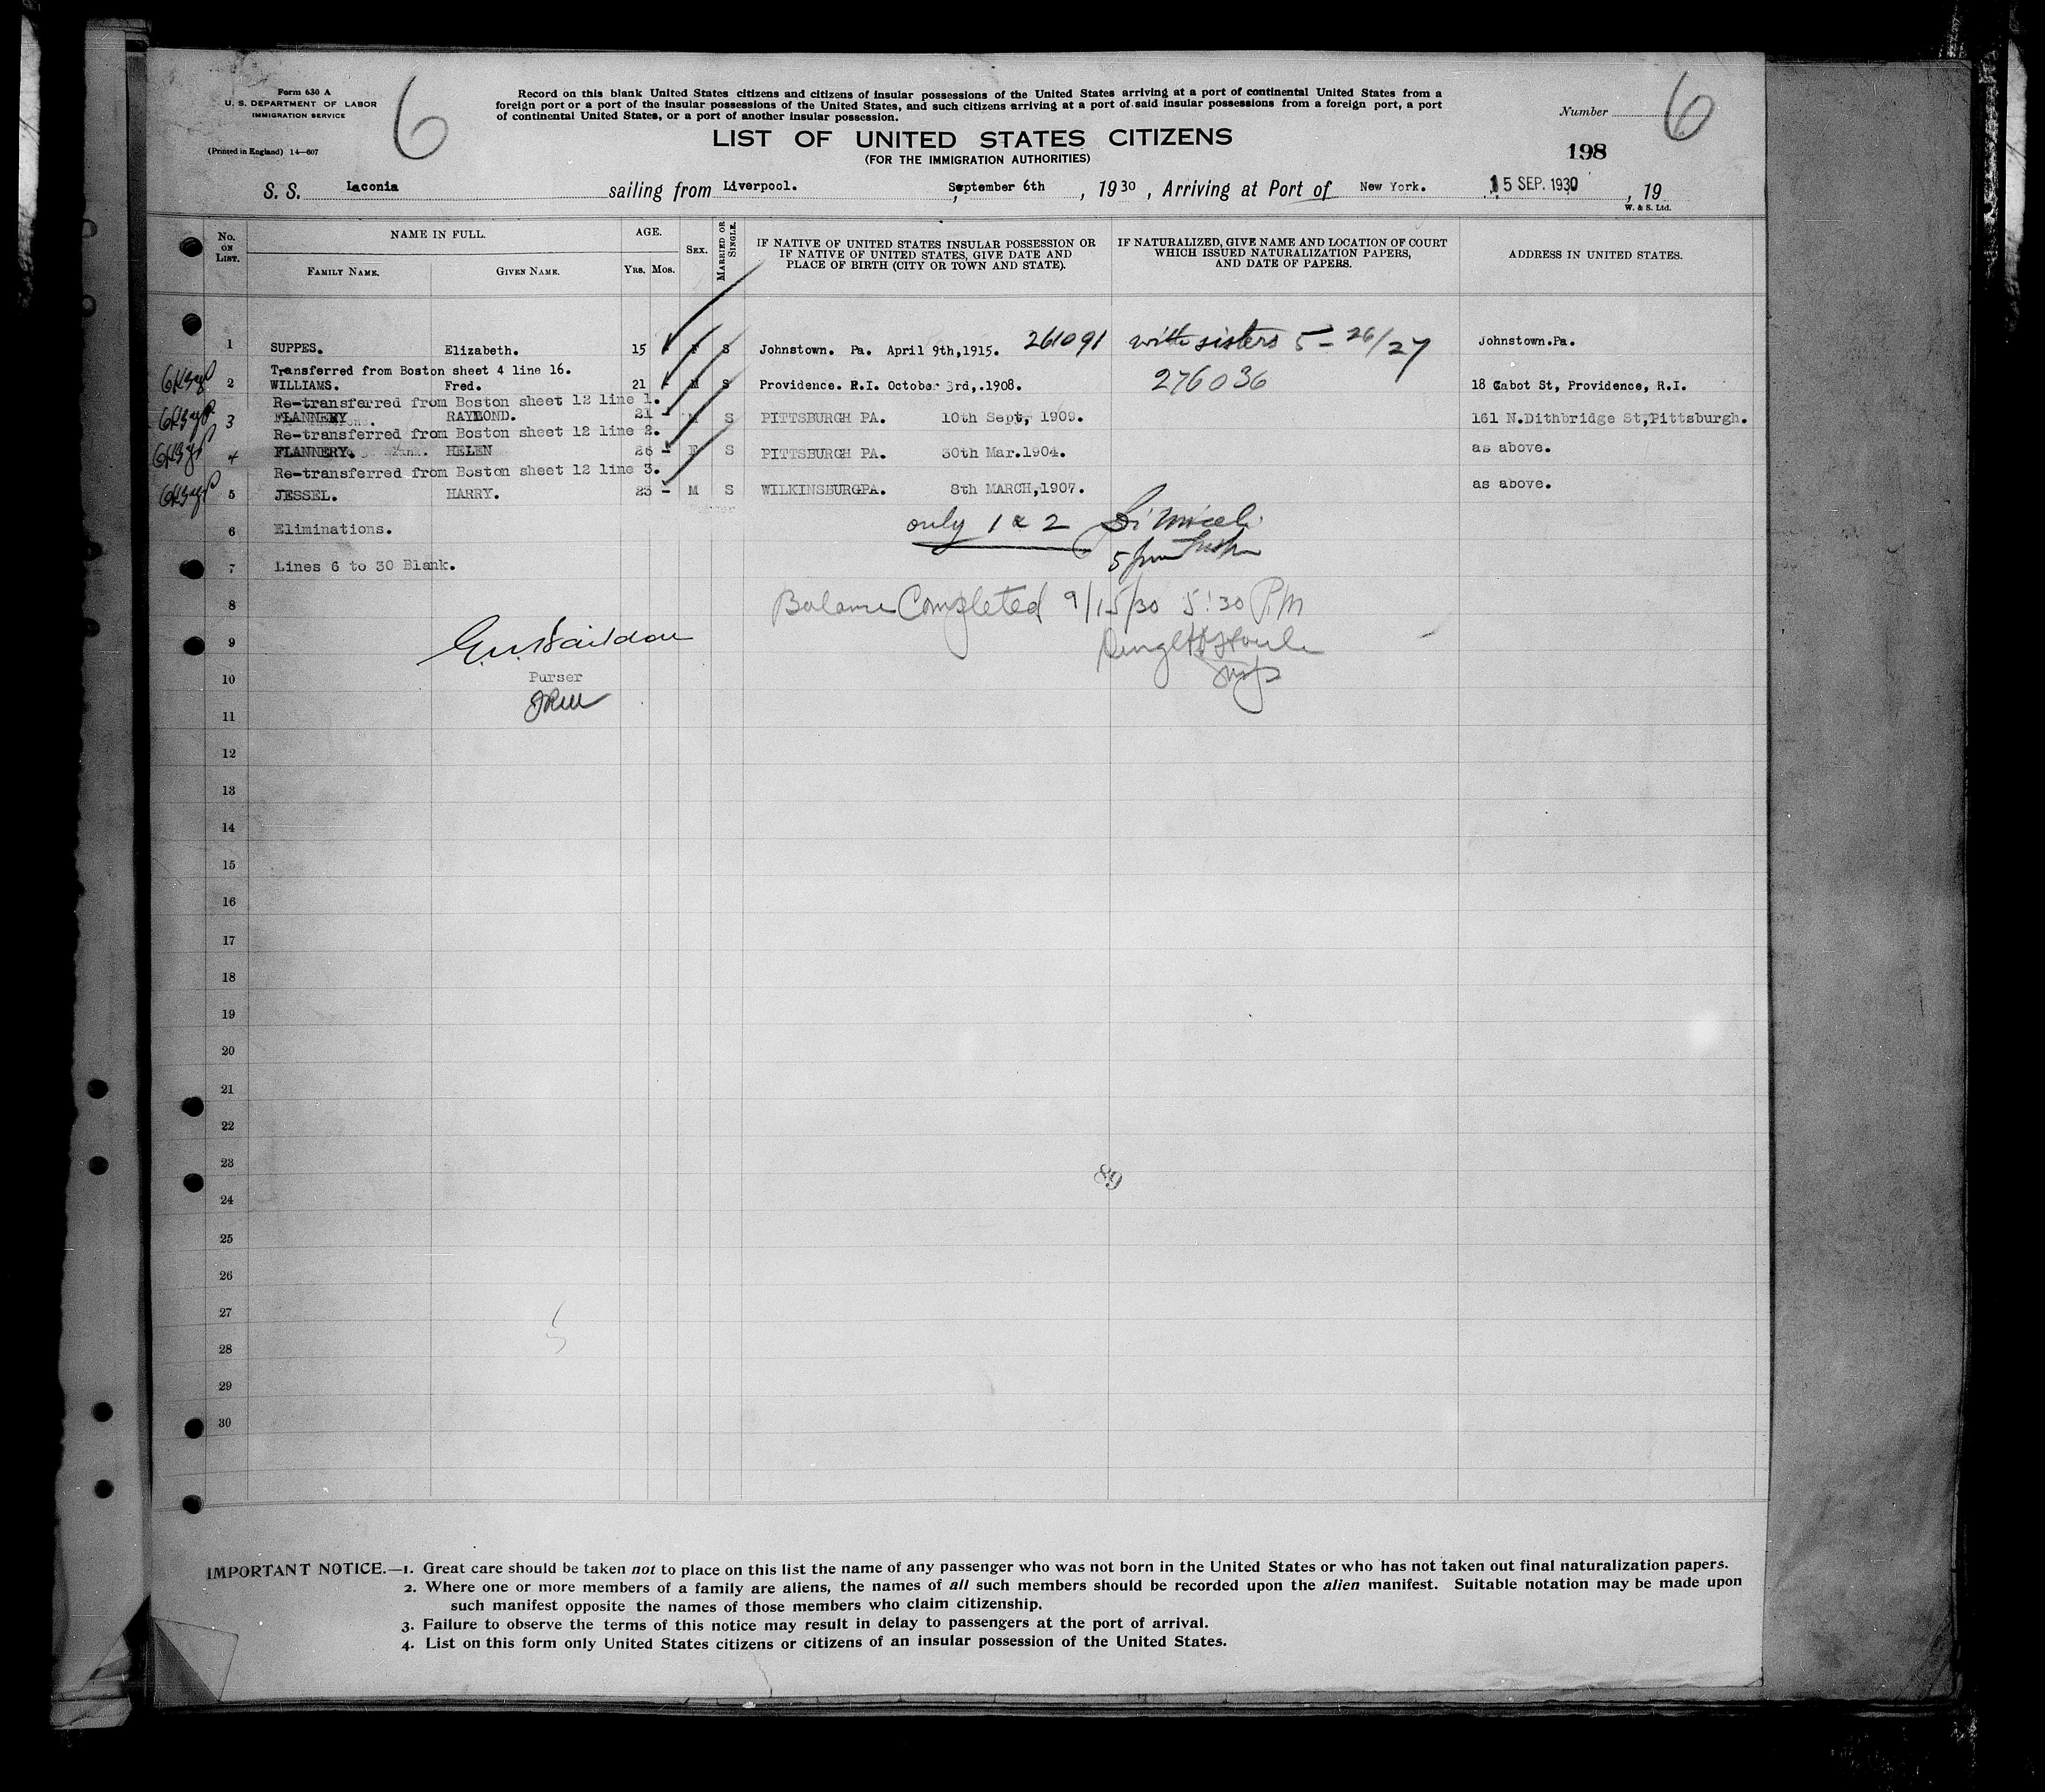 Form 630 A
U. S. DEPARTMENT OF LABOR
IMMIGRATION SERVICE
(Printed in England) 14—607
6
Record on this blank United States citizens and citizens of insular possessions of the United States arriving at a port of continental United States from a
foreign port or a port of the insular possessions of the United States, and such citizens arriving at a port of said insular possessions from a foreign port, a port
of continental United States, or a port of another insular possession.
Number 6
LIST OF UNITED STATES CITIZENS
(FOR THE IMMIGRATION AUTHORITIES)
198
S. S. Laconia sailing from Liverpool. September 6th, 1930, Arriving at Port of New York. 15 SEP. 1930, 19
W. & S. Ltd.
No. ON LIST. NAME IN FULL. FAMILY NAME. GIVEN NAME. AGE. YRS. MOS. SEX. MARRIED OR SINGLE. IF NATIVE OF UNITED STATES INSULAR POSSESSION OR IF NATIVE OF UNITED STATES, GIVE DATE AND PLACE OF BIRTH (CITY OR TOWN AND STATE). IF NATURALIZED, GIVE NAME AND LOCATION OF COURT WHICH ISSUED NATURALIZATION PAPERS, AND DATE OF PAPERS. ADDRESS IN UNITED STATES.
1 SUPPES. Elizabeth. 15 F S Johnstown. Pa. April 9th,1915. 261091 with sisters 5 - 26/27 Johnstown.Pa.
Transferred from Boston sheet 4 line 16.
2 WILLIAMS. Fred. 21 M S Providence. R.I. October 3rd,.1908. 276036 18 Cabot St, Providence, R.I.
Re-transferred from Boston sheet 12 line 1.
3 FLANNERY RAYMOND. 21 - M S PITTSBURGH PA. 10th Sept, 1909. 161 N.Dithbridge St,Pittsburgh.
Re-transferred from Boston sheet 12 line 2.
4 FLANNERY. HELEN 26 - F S PITTSBURGH PA. 30th Mar.1904. as above.
Re-transferred from Boston sheet 12 line 3.
5 JESSEL. HARRY. 23 - M S WILKINSBURGPA. 8th MARCH,1907. as above.
6 Eliminations. only 1 & 2
7 Lines 6 to 30 Blank.
8 Balance Completed 9/15/30 5:30 PM
9
10 Purser
11
12
13
14
15
16
17
18
19
20
21
22
23
89
24
25
26
27
28
29
30
IMPORTANT NOTICE.—1. Great care should be taken not to place on this list the name of any passenger who was not born in the United States or who has not taken out final naturalization papers.
2. Where one or more members of a family are aliens, the names of all such members should be recorded upon the alien manifest. Suitable notation may be made upon
such manifest opposite the names of those members who claim citizenship.
3. Failure to observe the terms of this notice may result in delay to passengers at the port of arrival.
4. List on this form only United States citizens or citizens of an insular possession of the United States.